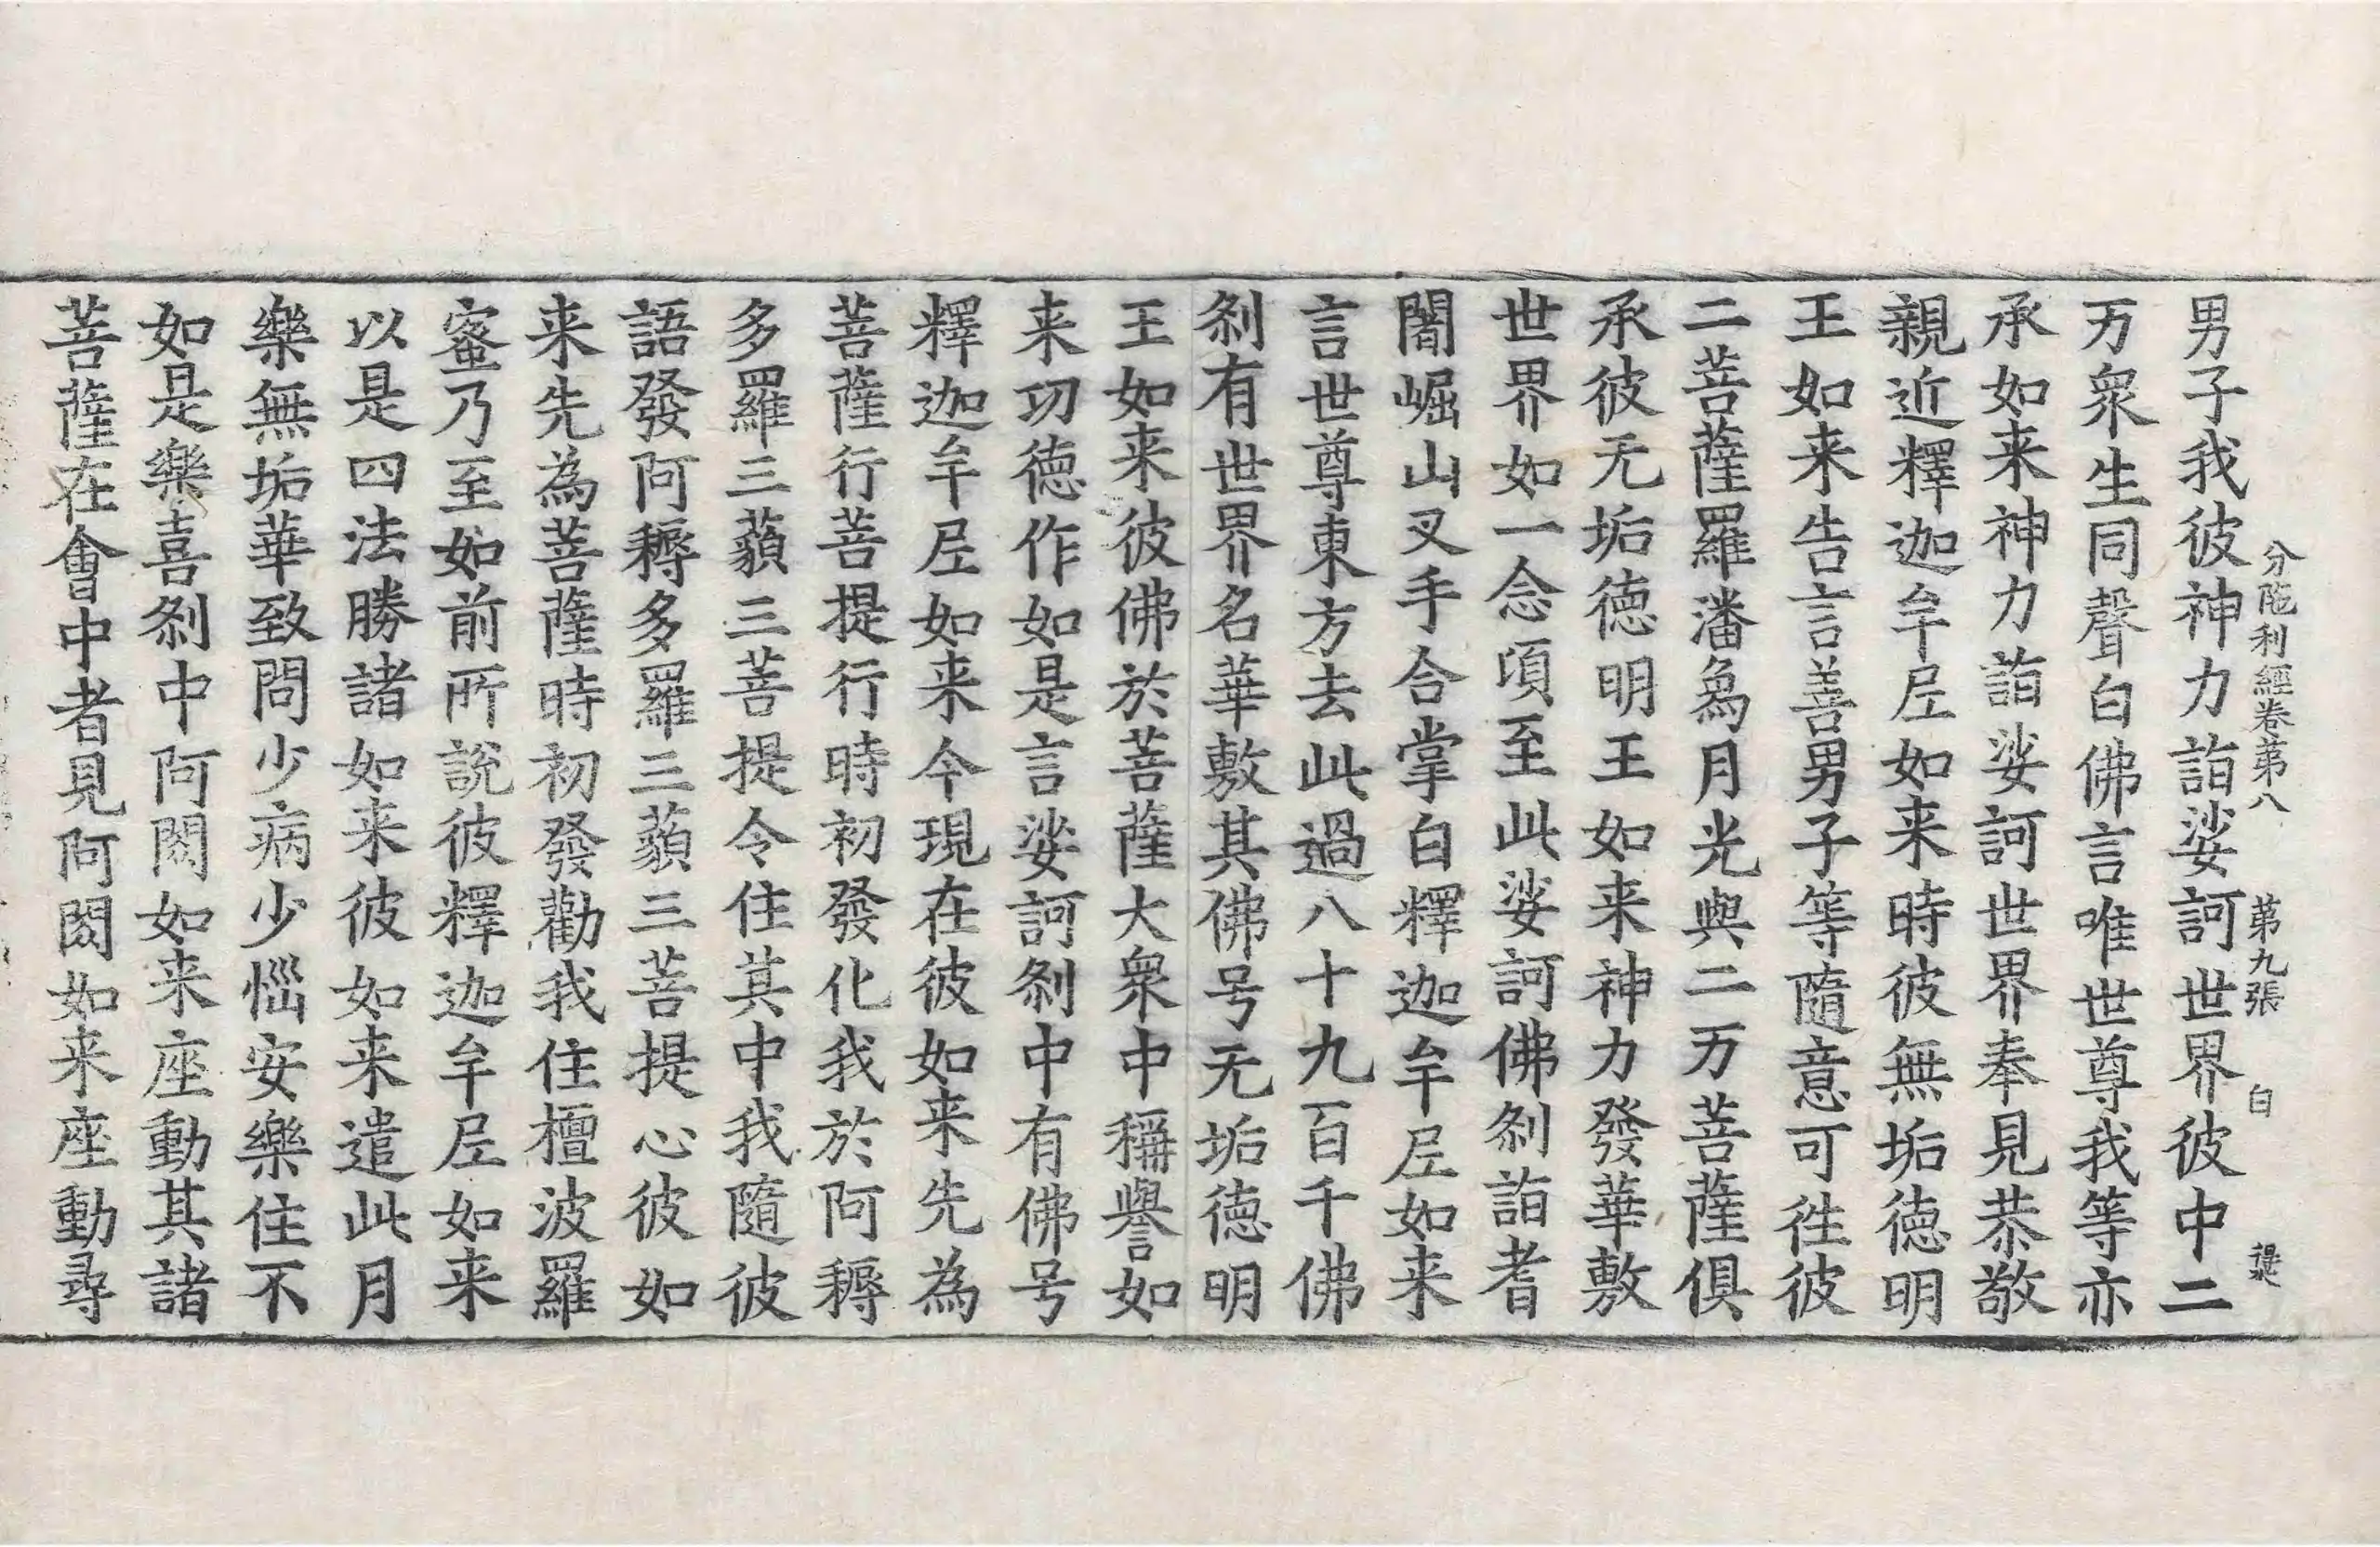 分陁利經卷第八 第九張 白
男子我彼神力詣娑訶世界彼中二
万衆生同聲白佛言唯世尊我等亦
承如来神力詣娑訶世界奉見恭敬
親近釋迦牟尼如来時彼無垢德明
王如来告言善男子等隨意可往彼
二菩薩羅潘為月光與二万菩薩俱
承彼无垢德明王如来神力發華敷
世界如一念頃至此娑訶佛剎詣耆
闍崛山叉手合掌白釋迦牟尼如来
言世尊東方去此過八十九百千佛
剎有世界名華敷其佛号无垢德明
王如来彼佛於菩薩大衆中稱譽如
来功德作如是言娑訶剎中有佛号
釋迦牟尼如来今現在彼如来先為
菩薩行菩提行時初發化我於阿耨
多羅三藐三菩提令住其中我隨彼
語發阿耨多羅三藐三菩提心彼如
来先為菩薩時初發勸我住檀波羅
蜜乃至如前所說彼釋迦牟尼如来
以是四法勝諸如来彼如来遣此月
樂無垢華致問少病少惱安樂住不
如是樂喜剎中阿閦如来座動其諸
菩薩在會中者見阿閦如来座動尋